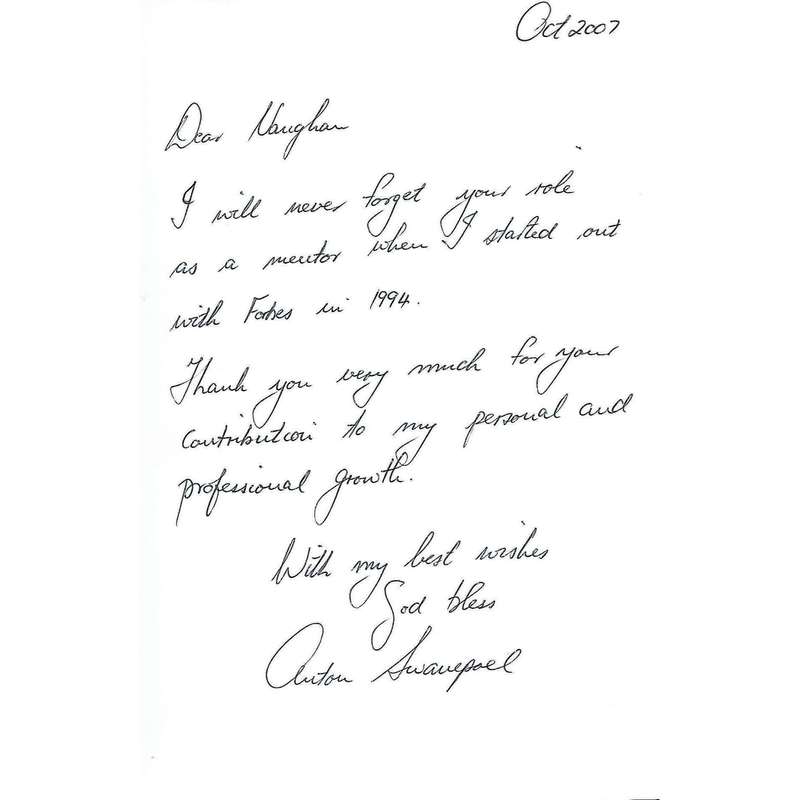 Oct 2007
Dear Vaughan
I will never forget your role
as a mentor when I started out
with Forbes in 1994.
Thank you very much for your
contribution to my personal and
professional growth.
With my best wishes
God bless
Anton Swanepoel